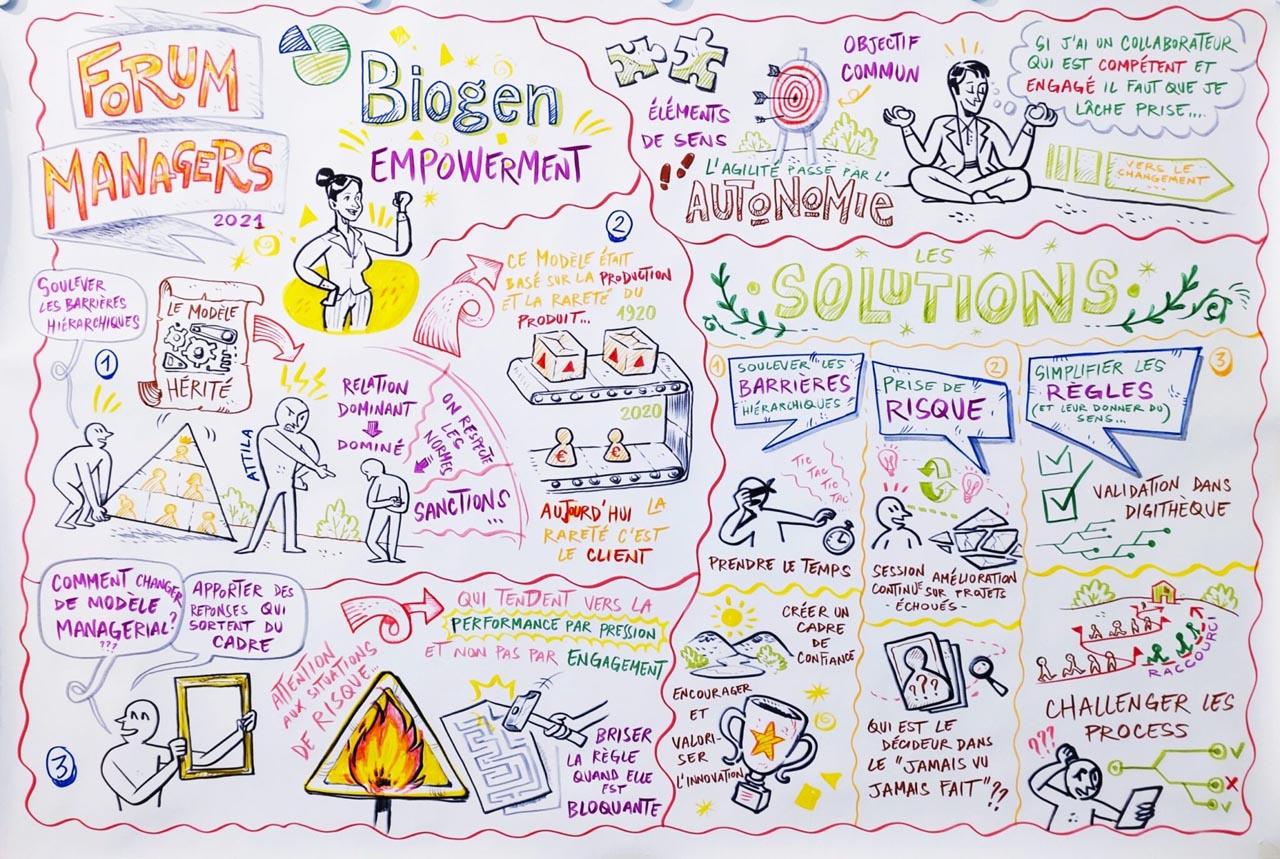 FORUM
MANAGERS
2021
Biogen
EMPOWERMENT
ÉLÉMENTS
DE SENS
OBJECTIF
COMMUN
L'AGILITÉ PASSE PAR L'
AUTONOMIE
SI J'AI UN COLLABORATEUR
QUI EST COMPÉTENT ET
ENGAGÉ IL FAUT QUE JE
LÂCHE PRISE...
VERS LE
CHANGEMENT
...
SOULEVER
LES BARRIÈRES
HIÉRARCHIQUES
1
LE MODÈLE
HÉRITÉ
ATTILA
RELATION
DOMINANT
DOMINÉ
ON RESPECTE
LES
NORMES
SANCTIONS
...
2
CE MODÈLE ÉTAIT
BASÉ SUR LA PRODUCTION
ET LA RARETÉ DU
PRODUIT...
1920
2020
€
€
AUJOURD'HUI LA
RARETÉ C'EST
LE CLIENT
COMMENT CHANGER
DE MODÈLE
MANAGERIAL?
???
APPORTER DES
REPONSES QUI
SORTENT DU
CADRE
3
ATTENTION
AUX SITUATIONS
DE RISQUE...
QUI TENDENT VERS LA
PERFORMANCE PAR PRESSION
ET NON PAS PAR ENGAGEMENT
BRISER
LA RÈGLE
QUAND ELLE
EST
BLOQUANTE
LES
SOLUTIONS
1
SOULEVER LES
BARRIÈRES
HIÉRARCHIQUES
TIC
TAC
TIC
TAC
PRENDRE LE TEMPS
CRÉER UN
CADRE
DE
CONFIANCE
ENCOURAGER
ET
VALORI-
SER
L'INNOVATION
2
PRISE DE
RISQUE
SESSION AMÉLIORATION
CONTINUE SUR PROJETS
- ÉCHOUÉS -
???
QUI EST LE
DÉCIDEUR DANS
LE "JAMAIS VU
JAMAIS FAIT"??
3
SIMPLIFIER LES
RÈGLES
(ET LEUR DONNER DU
SENS...
VALIDATION DANS
DIGITHÈQUE
RACCOURCI
CHALLENGER LES
PROCESS
???